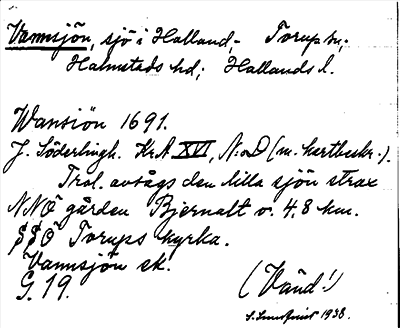 Vannsjön, sjö i Halland,- Torup sn;
Halmstads hd; Hallands l.
Wansiön 1691.
J. Söderlingh. KrA XVI, N:o D (m. kartbeskr.).
Trol. avsågs den lilla sjön strax
NNÖ gården Bjernalt o. 4,8 km.
SSÖ Torups kyrka.
Vannsjön ek.
G. 19.
(Vänd!)
1938.